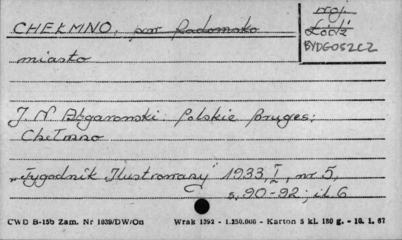 CHEŁMNO, pow Radomsko
woj.
Łódź
BYDGOSZCZ
miasto
J. N. Abgarowski: Polskie Bruges:
Chełmno
„Tygodnik Ilustrowany" 1933, I, nr 5,
s. 90-92; il. 6
CWD B-15b Zam. Nr 1039/DW/On Wrak 1392 - 1.250.000 - Karton 5 kl. 180 g. - 10. 1. 67